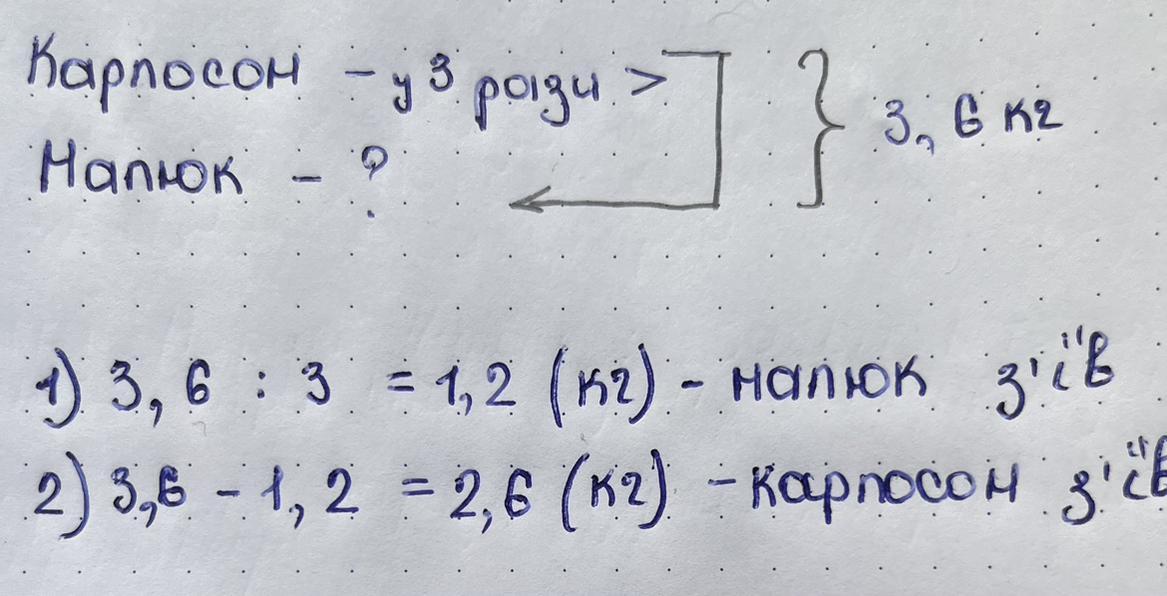 Карпосон - у 3 рази >
3,6 кг
Напюк - ?
1) 3,6 : 3 = 1,2 (кг) - напюк з'їв
2) 3,6 - 1,2 = 2,6 (кг) - карпосон з'їв